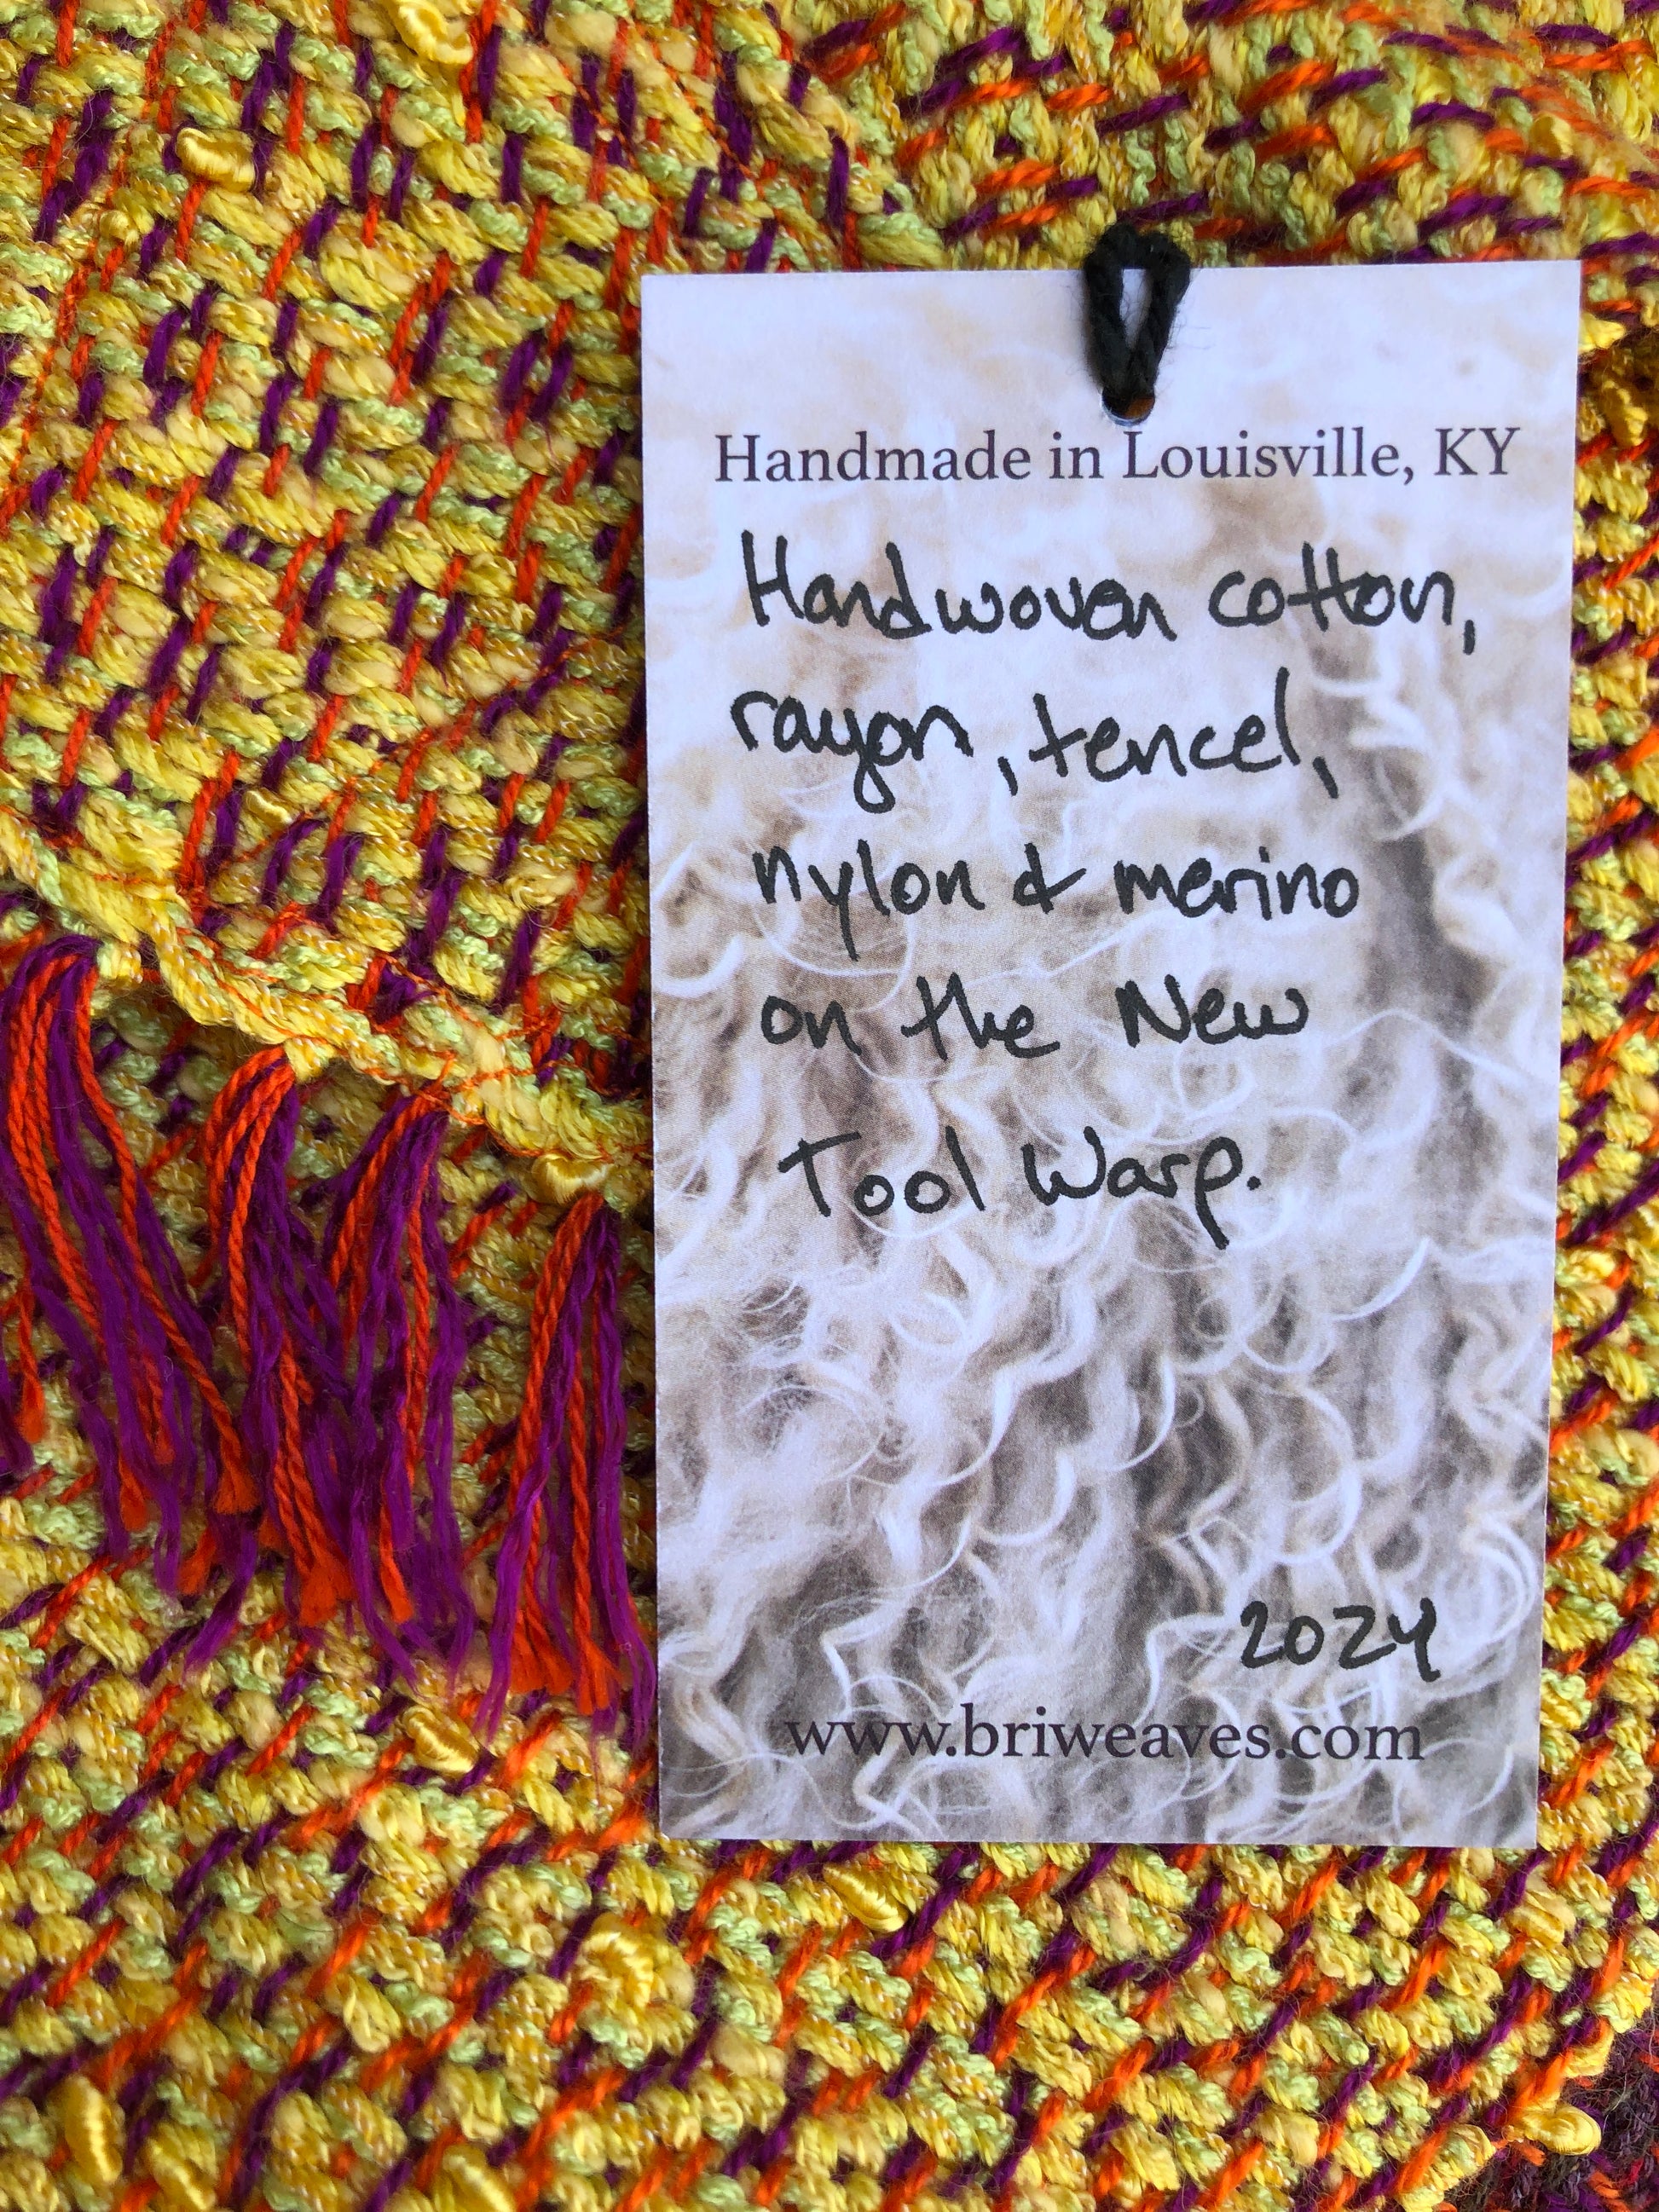 Handmade in Louisville, KY
Handwoven cotton,
rayon, tencel,
nylon & merino
on the New
Tool Warp.
2024
www.briweaves.com